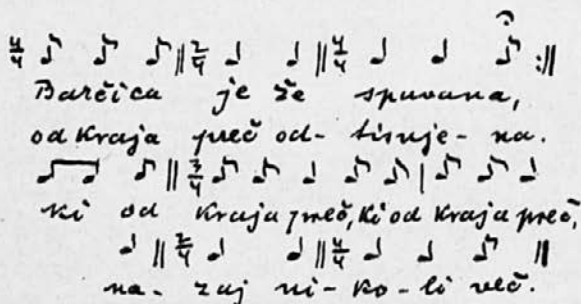 Barčica je že spuvana,
od kraja preč od- tisnje- na.
ki od kraja preč, ki od kraja preč,
na- zaj ni- ko- li več.